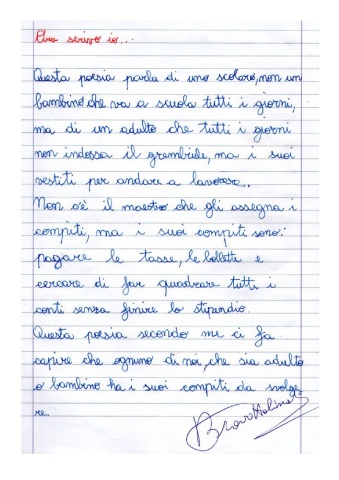 Ora scrivo io...
Questa poesia parla di uno scolaro, non un
bambino che va a scuola tutti i giorni,
ma di un adulto che tutti i giorni
non indossa il grembiule, ma i suoi
vestiti per andare a lavorare..
Non c'è il maestro che gli assegna i
compiti, ma i suoi compiti sono:
pagare le tasse, le bollette e
cercare di far quadrare tutti i
conti senza finire lo stipendio.
Questa poesia secondo me ci fa
capire che ognuno di noi, che sia adulto
o bambino ha i suoi compiti da svolge-
re.